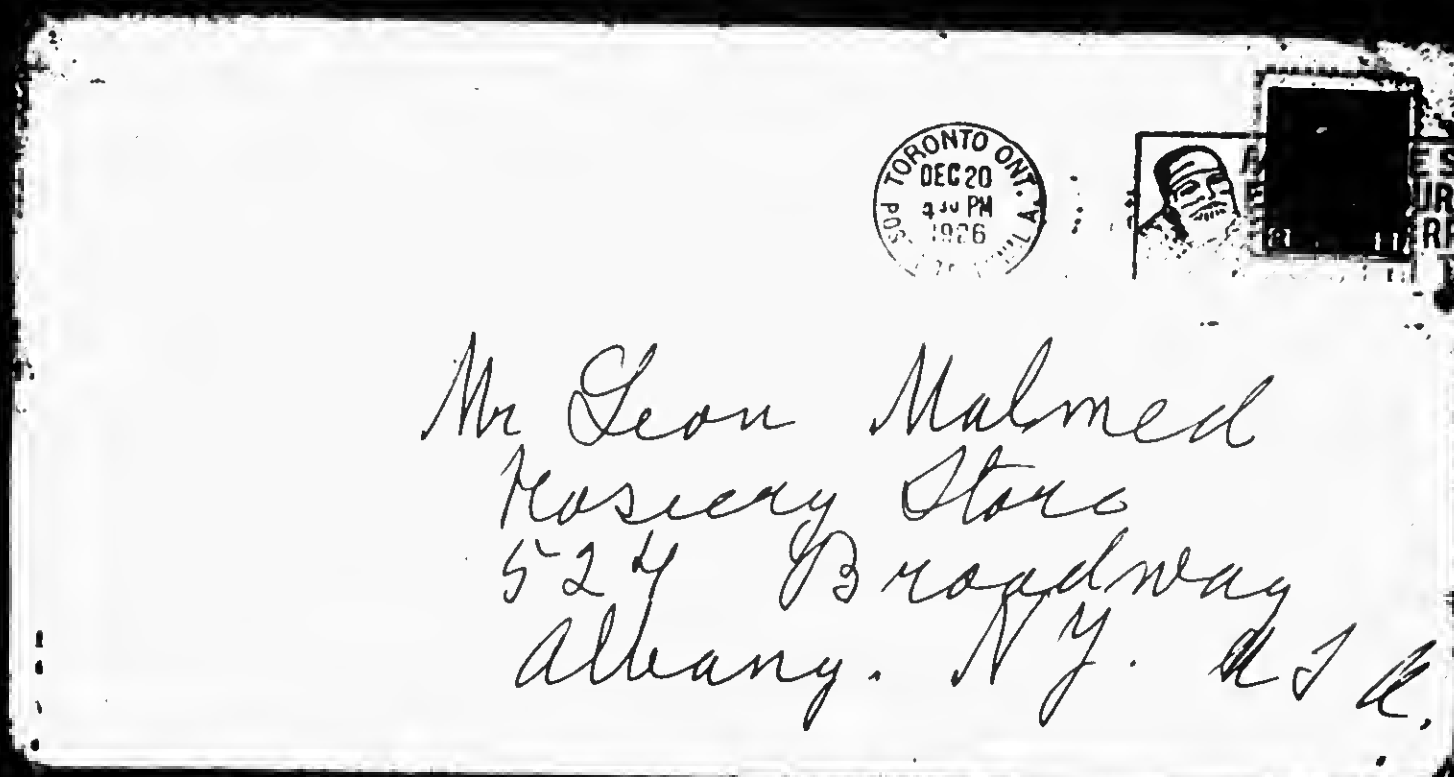 TORONTO ONT. A
DEC 20
4 30 PM
1926
Mr Leon Malmed
Hosiery Store
524 Broadway
Albany. N Y. U S A.